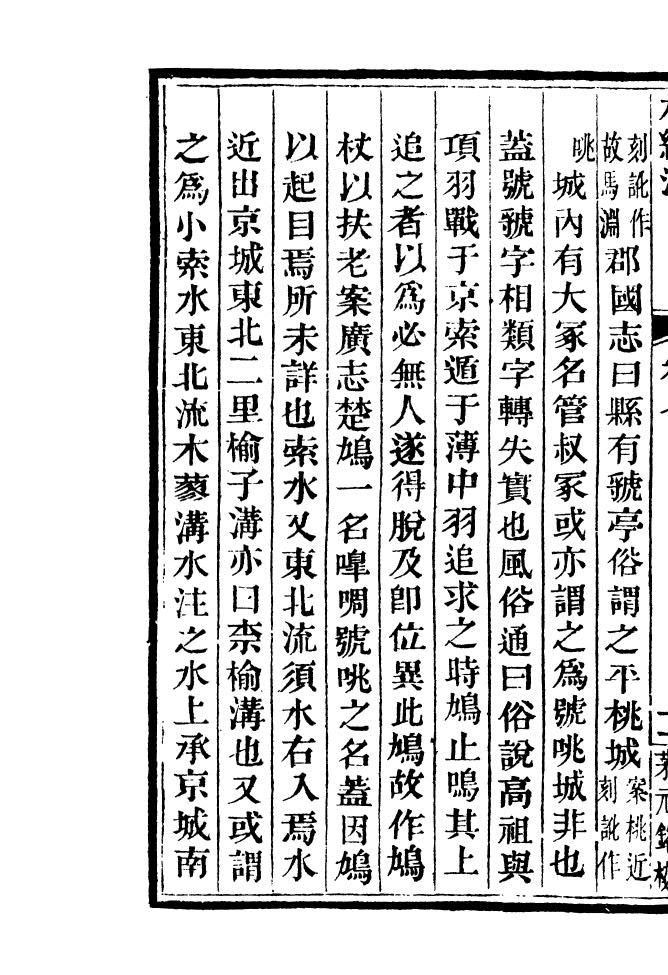 刻訛作
故馬淵郡國志曰縣有虢亭俗謂之平桃城案桃近
刻訛作
咷城內有大冢名管叔冢或亦謂之爲號咷城非也
蓋號虢字相類字轉失實也風俗通曰俗說高祖與
項羽戰于京索遁于薄中羽追求之時鳩止鳴其上
追之者以爲必無人遂得脫及卽位異此鳩故作鳩
杖以扶老案廣志楚鳩一名嘷啁號咷之名蓋因鳩
以起目焉所未詳也索水又東北流須水右入焉水
近出京城東北二里榆子溝亦曰柰榆溝也又或謂
之爲小索水東北流木蓼溝水注之水上承京城南